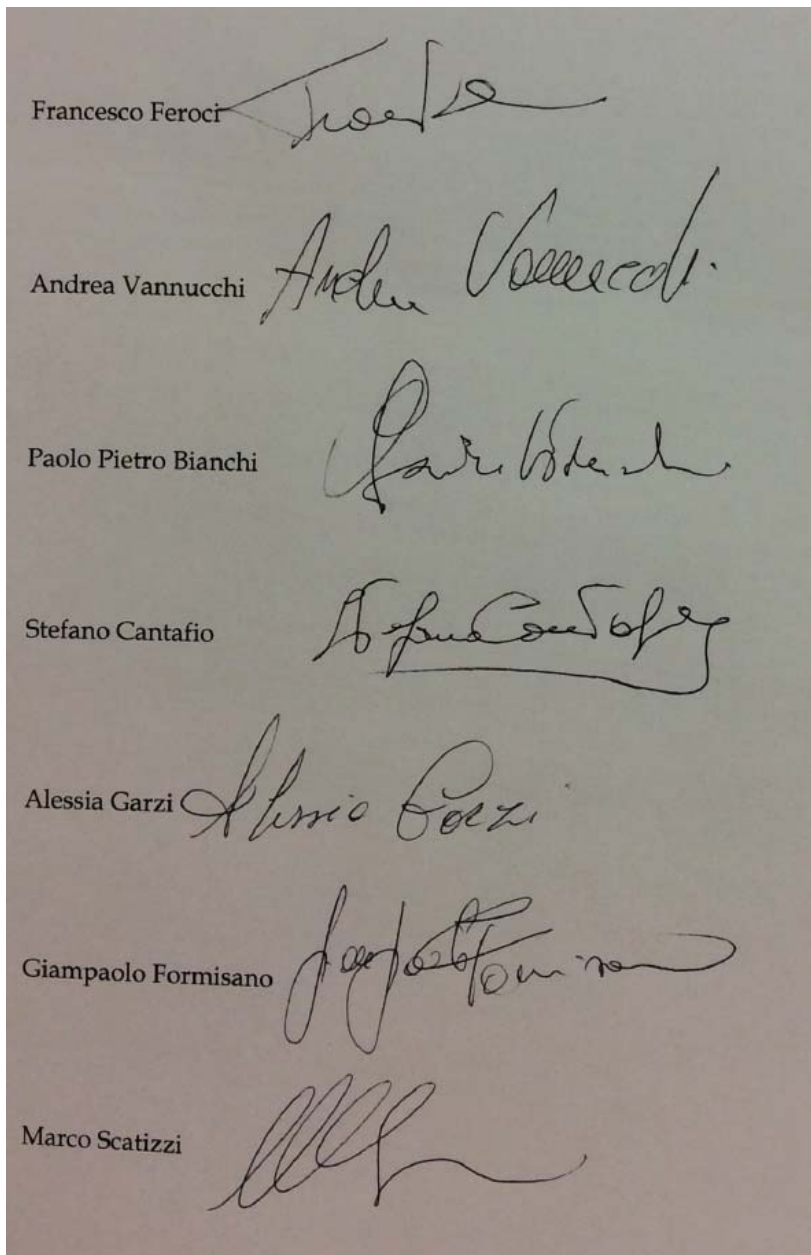 Francesco Feroci
Andrea Vannucchi Andrea Vannucchi
Paolo Pietro Bianchi
Stefano Cantafio Stefano Cantafio
Alessia Garzi Alessia Garzi
Giampaolo Formisano
Marco Scatizzi